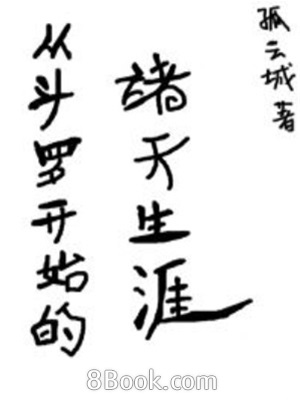 从斗罗开始的
诸天生涯
孤云城 著
8Book.com